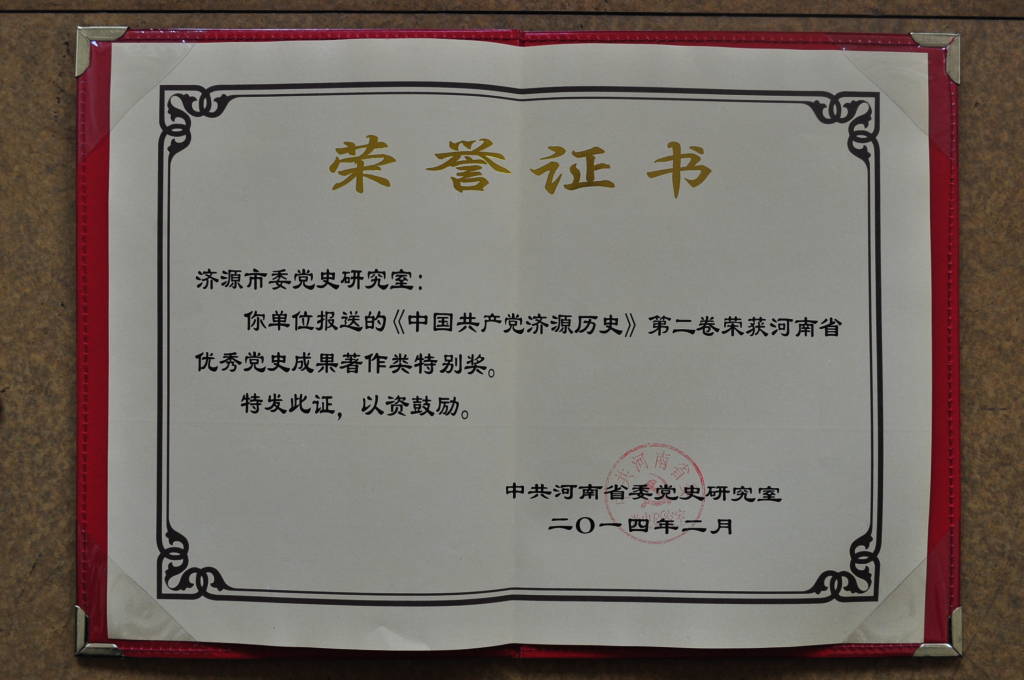 荣誉证书
济源市委党史研究室：
你单位报送的《中国共产党济源历史》第二卷荣获河南省
优秀党史成果著作类特别奖。
特发此证，以资鼓励。
中共河南省委党史研究室
二〇一四年二月